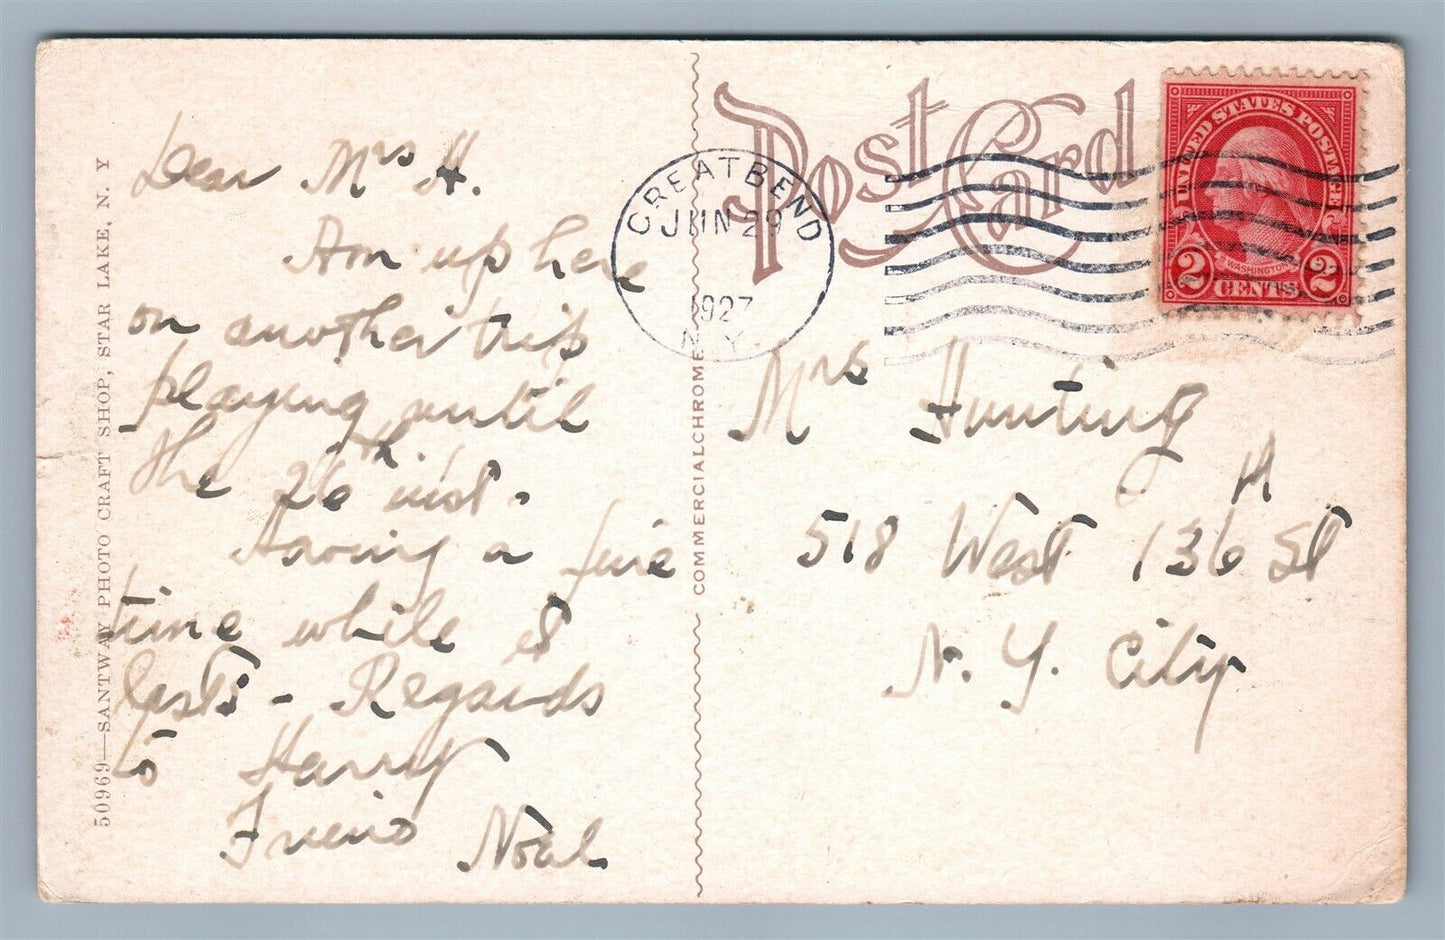 Dear Mrs H.
Am up here
on another trip
playing until
the 26th inst.
Having a fine
time while it
lasts - Regards
to Harry
Friend Noal
50969—SANTWAY PHOTO CRAFT SHOP, STAR LAKE, N. Y
COMMERCIALCHROME
Post Card
GREAT BEND
JUN 29
1927
N.Y.
UNITED STATES POSTAGE
WASHINGTON
2 CENTS 2
Mrs Hunting
H
518 West 136 St
N. Y. City